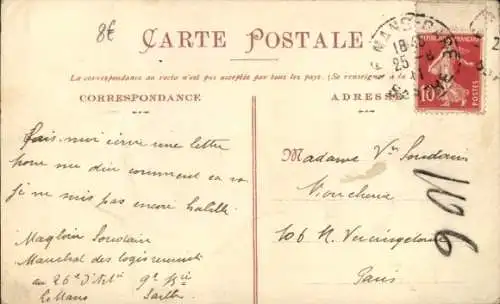 8€
CARTE POSTALE
La correspondance au recto n'est pas acceptée par tous les pays. (Se renseigner à la
CORRESPONDANCE
ADRESSE
REPUBLIQUE FRANÇAISE
10
POSTES
18
25
Fais-moi écrire une lettre
pour me dire comment ça va
je ne suis pas encore habillé
Magloire Soudain
Marechal des logis
au 26e d'Art
Le Mans Sarthe
Madame Vve Soudain
106 R. Vercingétorix
Paris